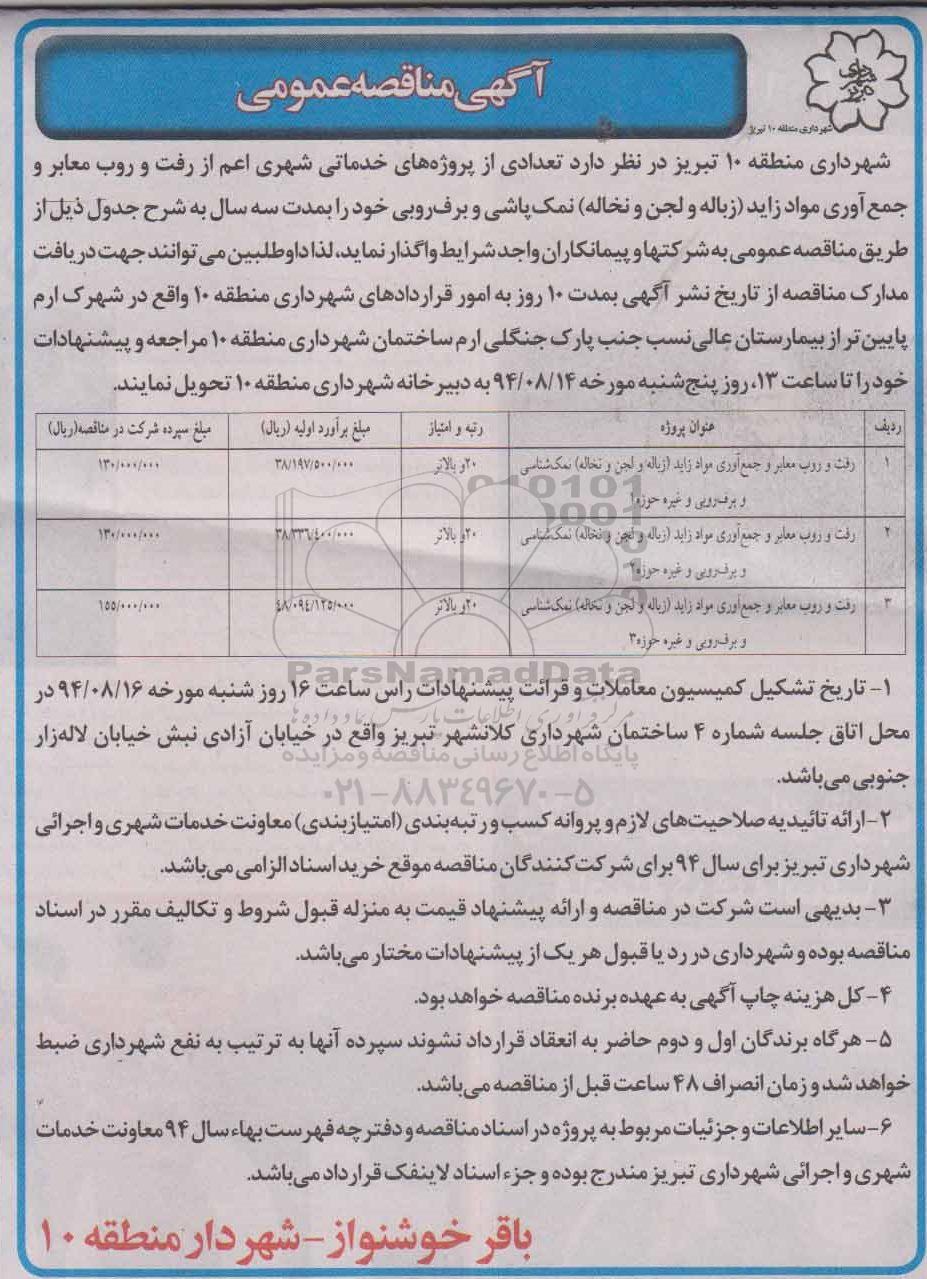 شهرداری تبریز
شهرداری منطقه ۱۰ تبریز
آگهی مناقصه عمومی
شهرداری منطقه ۱۰ تبریز در نظر دارد تعدادی از پروژه‌های خدماتی شهری اعم از رفت و روب معابر و
جمع آوری مواد زاید (زباله و لجن و نخاله) نمک‌پاشی و برف‌روبی خود را بمدت سه سال به شرح جدول ذیل از
طریق مناقصه عمومی به شرکتها و پیمانکاران واجد شرایط واگذار نماید، لذا داوطلبین می توانند جهت دریافت
مدارک مناقصه از تاریخ نشر آگهی بمدت ۱۰ روز به امور قراردادهای شهرداری منطقه ۱۰ واقع در شهرک ارم
پایین‌تر از بیمارستان عالی‌نسب جنب پارک جنگلی ارم ساختمان شهرداری منطقه ۱۰ مراجعه و پیشنهادات
خود را تا ساعت ۱۳، روز پنج‌شنبه مورخه ۹۴/۰۸/۱۴ به دبیرخانه شهرداری منطقه ۱۰ تحویل نمایند.
ردیف عنوان پروژه رتبه و امتیاز مبلغ برآورد اولیه (ریال) مبلغ سپرده شرکت در مناقصه(ریال)
۱ رفت و روب معابر و جمع‌آوری مواد زاید (زباله و لجن و نخاله) نمک‌شناسی ۲۰و بالاتر ۳۸/۱۹۷/۵۰۰/۰۰۰ ۱۳۰/۰۰۰/۰۰۰
و برف‌روبی و غیره حوزه۱
۲ رفت و روب معابر و جمع‌آوری مواد زاید (زباله و لجن و نخاله) نمک‌شناسی ۲۰و بالاتر ۳۸/۳۳۶/۴۰۰/۰۰۰ ۱۳۰/۰۰۰/۰۰۰
و برف‌روبی و غیره حوزه۲
۳ رفت و روب معابر و جمع‌آوری مواد زاید (زباله و لجن و نخاله) نمک‌شناسی ۲۰و بالاتر ۴۸/۰۹۴/۱۲۵/۰۰۰ ۱۵۵/۰۰۰/۰۰۰
و برف‌روبی و غیره حوزه۳
ParsNamadData
مرکز فرآوری اطلاعات پارس نماد داده ها
پایگاه اطلاع رسانی مناقصه و مزایده
۰۲۱-۸۸۳۴۹۶۷۰-۵
۱- تاریخ تشکیل کمیسیون معاملات و قرائت پیشنهادات راس ساعت ۱۶ روز شنبه مورخه ۹۴/۰۸/۱۶ در
محل اتاق جلسه شماره ۴ ساختمان شهرداری کلانشهر تبریز واقع در خیابان آزادی نبش خیابان لاله‌زار
جنوبی می‌باشد.
۲-ارائه تائیدیه صلاحیت‌های لازم و پروانه کسب و رتبه‌بندی (امتیازبندی) معاونت خدمات شهری و اجرائی
شهرداری تبریز برای سال ۹۴ برای شرکت‌کنندگان مناقصه موقع خرید اسناد الزامی می‌باشد.
۳- بدیهی است شرکت در مناقصه و ارائه پیشنهاد قیمت به منزله قبول شروط و تکالیف مقرر در اسناد
مناقصه بوده و شهرداری در رد یا قبول هر یک از پیشنهادات مختار می‌باشد.
۴- کل هزینه چاپ آگهی به عهده برنده مناقصه خواهد بود.
۵- هر گاه برندگان اول و دوم حاضر به انعقاد قرارداد نشوند سپرده آنها به ترتیب به نفع شهرداری ضبط
خواهد شد و زمان انصراف ۴۸ ساعت قبل از مناقصه می‌باشد.
۶-سایر اطلاعات و جزئیات مربوط به پروژه در اسناد مناقصه و دفترچه فهرست بهاء سال ۹۴ معاونت خدمات
شهری و اجرائی شهرداری تبریز مندرج بوده و جزء اسناد لاینفک قرارداد می‌باشد.
باقر خوشنواز - شهردار منطقه ۱۰